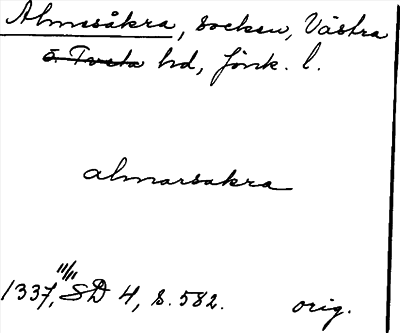 Almesåkra, socken, Västra
o. Tveta hd, Jönk. l.
almarsakra
11/11
1337, SD 4, s. 582. orig.